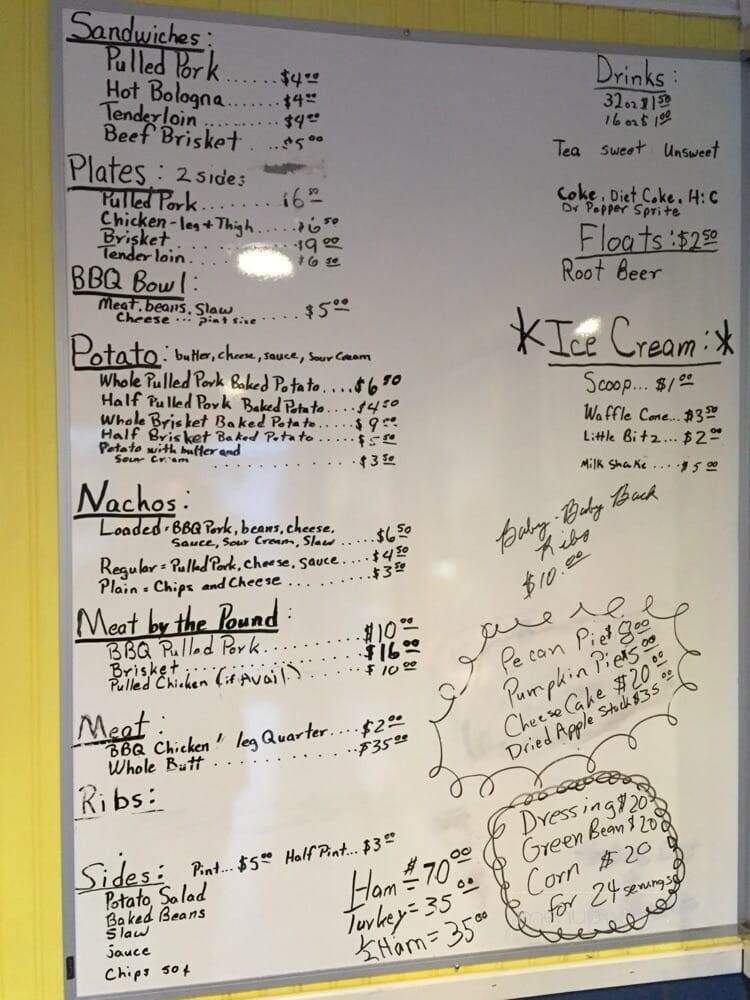 Sandwiches:
Pulled Pork ...... $4.00
Hot Bologna....... $4.00
Tenderloin ........ $4.00
Beef Brisket ... $5.00
Plates: 2 sides
Pulled Pork ........ $6.50
Chicken - leg + Thigh .... $6.50
Brisket ........ $9.00
Tenderloin ....... $6.50
BBQ Bowl:
Meat, beans, Slaw
Cheese ... pint size ..... $5.00
Potato: butter, cheese, sauce, Sour Cream
Whole Pulled Pork Baked Potato.... $6.50
Half Pulled Pork Baked Potato .... $4.50
Whole Brisket Baked Potato .... $9.00
Half Brisket Baked Potato .... $5.50
Potato with butter and
Sour Cream .......... $3.50
Nachos:
Loaded = BBQ Pork, beans, cheese,
Sauce, Sour Cream, Slaw .... $6.50
Regular = Pulled Pork, cheese, sauce .... $4.50
Plain = Chips and Cheese ........ $3.50
Meat by the Pound:
BBQ Pulled Pork......... $10.00
Brisket .............. $16.00
Pulled Chicken (if Avail) ..... $10.00
Meat:
BBQ Chicken " leg Quarter.... $2.00
Whole Butt ............ $35.00
Ribs:
Sides: Pint... $5.00 Half Pint... $3.00
Potato Salad
Baked Beans
Slaw
sauce
Chips 50¢
Ham = $70.00
Turkey = 35.00
1/2 Ham = 35.00
Drinks:
32 oz $1.50
16 oz $1.00
Tea sweet Unsweet
Coke, Diet Coke, Hi C
Dr Pepper Sprite
Floats: $2.50
Root Beer
*Ice Cream:*
Scoop... $1.00
Waffle Cone... $3.50
Little Bitz... $2.00
Milk Shake .... $5.00
Baby - Baby Back
Ribs
$10.00
Pecan Pie $8.00
Pumpkin Pie $5.00
Cheese Cake $20.00
Dried Apple Stack $35.00
Dressing $20
Green Bean $20
Corn $20
for 24 servings